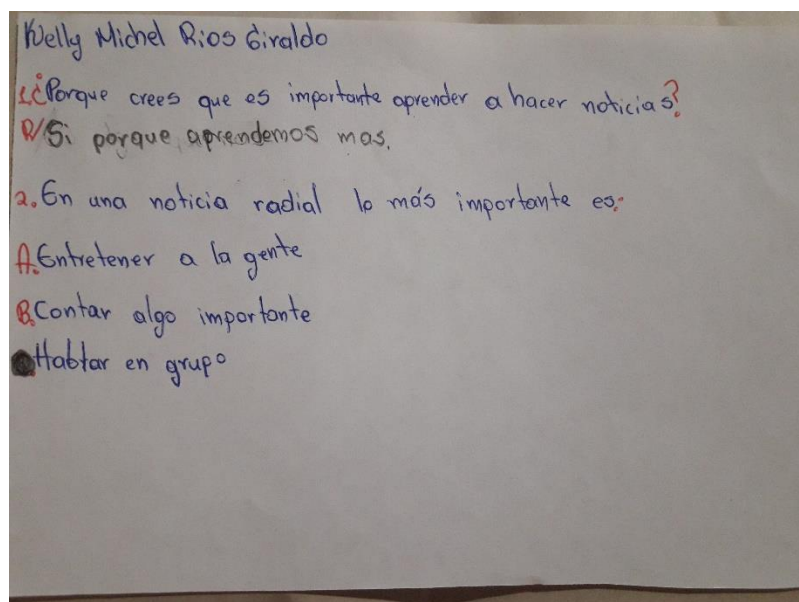 Kelly Michel Rios Giraldo
1. ¿Porque crees que es importante aprender a hacer noticias?
R/ Si porque aprendemos mas.
2. En una noticia radial lo más importante es:
A. Entretener a la gente
B. Contar algo importante
Hablar en grupo